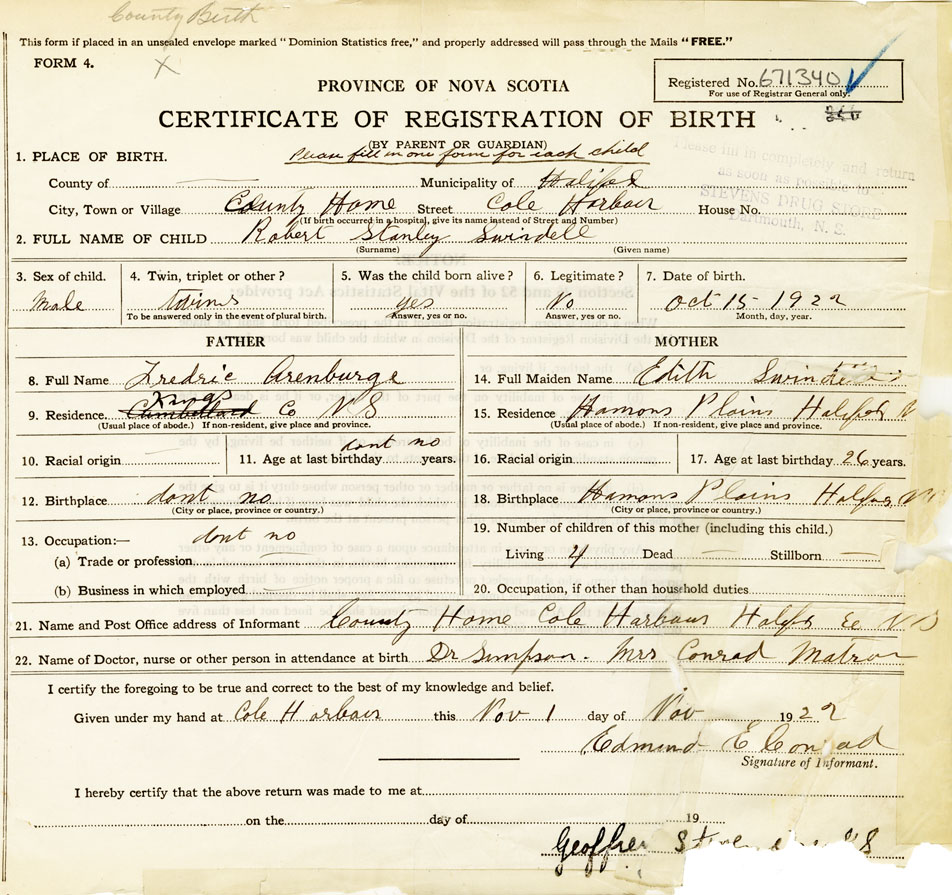 County Birth
This form if placed in an unsealed envelope marked "Dominion Statistics free," and properly addressed will pass through the Mails "FREE."
FORM 4. X
Registered No. 671340
For use of Registrar General only.
PROVINCE OF NOVA SCOTIA
CERTIFICATE OF REGISTRATION OF BIRTH
(BY PARENT OR GUARDIAN)
Please fill in one form for each child
Please fill in completely and return
as soon as possible to
STEVENS DRUG STORE
Dartmouth, N. S.
1. PLACE OF BIRTH.
County of Municipality of Halifax
City, Town or Village County Home Street Cole Harbour House No.
(If birth occurred in a hospital, give its name instead of Street and Number)
2. FULL NAME OF CHILD Robert Stanley Swindell
(Surname) (Given name)
3. Sex of child. Male
4. Twin, triplet or other? twins
To be answered only in the event of plural birth.
5. Was the child born alive? yes
Answer, yes or no.
6. Legitimate? No
Answer, yes or no.
7. Date of birth. Oct 15 1922
Month, day, year.
FATHER
8. Full Name Fredric Arenburge
9. Residence Kings Co N S
(Usual place of abode.) If non-resident, give place and province.
10. Racial origin
11. Age at last birthday dont no years.
12. Birthplace dont no
(City or place, province or country.)
13. Occupation:— dont no
(a) Trade or profession
(b) Business in which employed
MOTHER
14. Full Maiden Name Edith Swindell
15. Residence Hamons Plains Halifax N
(Usual place of abode.) If non-resident, give place and province.
16. Racial origin
17. Age at last birthday 26 years.
18. Birthplace Hamons Plains Halifax, N
(City or place, province or country.)
19. Number of children of this mother (including this child.)
Living 4 Dead — Stillborn —
20. Occupation, if other than household duties
21. Name and Post Office address of Informant County Home Cole Harbour Halifx Co N S
22. Name of Doctor, nurse or other person in attendance at birth Dr Simpson. Mrs Conrad Matron
I certify the foregoing to be true and correct to the best of my knowledge and belief.
Given under my hand at Cole Harbour this Nov 1 day of Nov 1922
Edmund E Conrad
Signature of Informant.
I hereby certify that the above return was made to me at
on the day of 19
Geoffrey Stevens